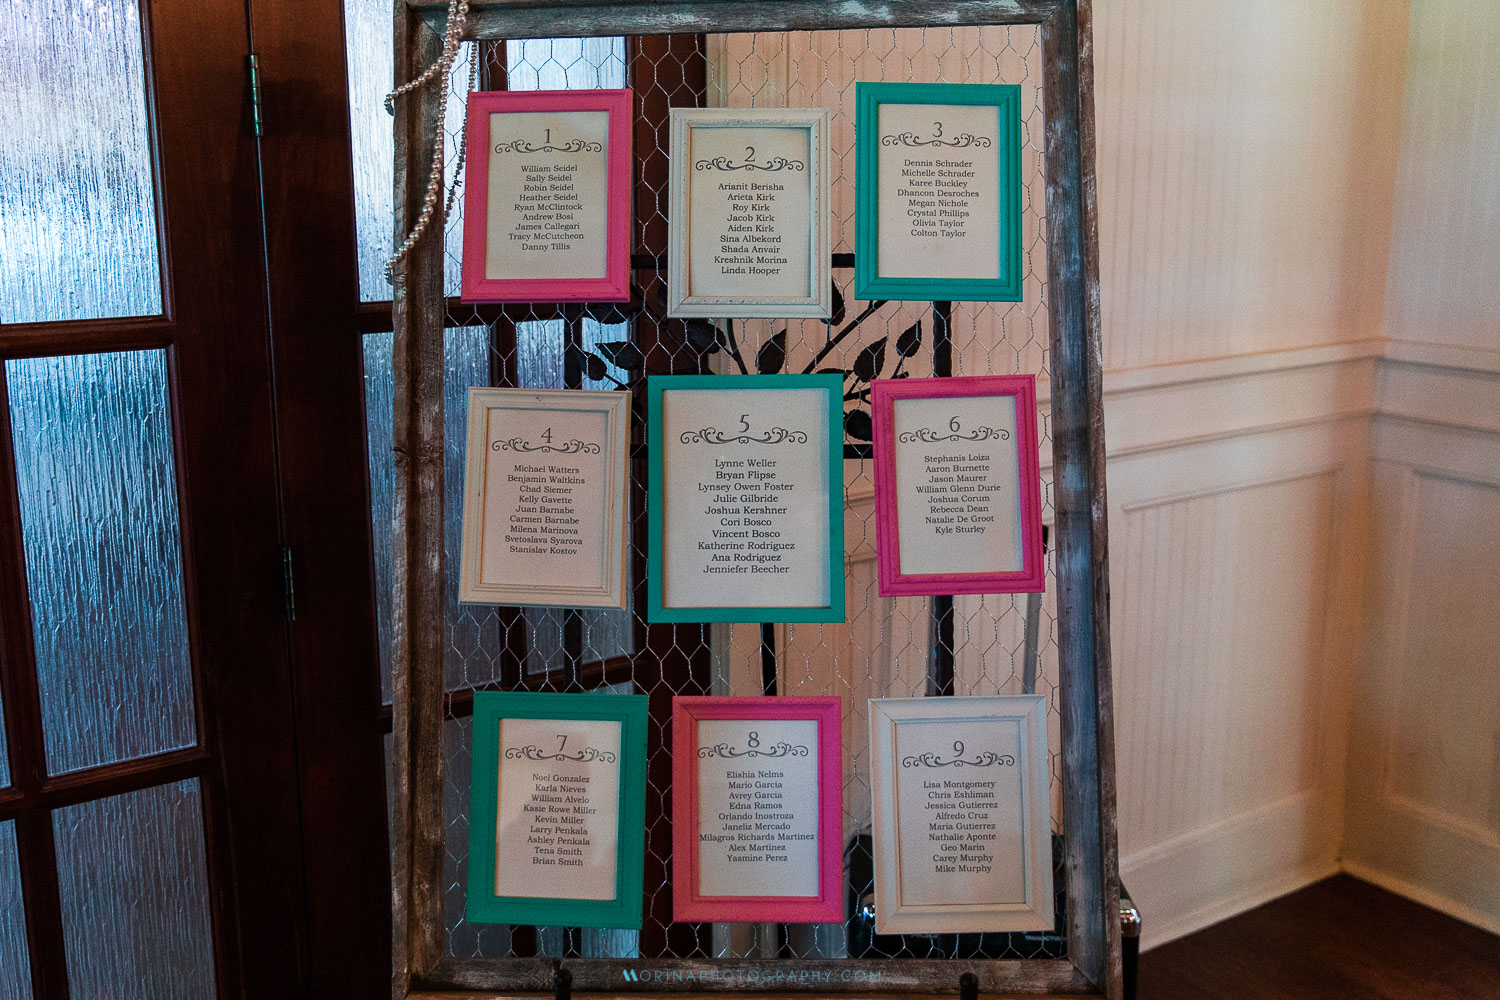 1
William Seidel
Sally Seidel
Robin Seidel
Heather Seidel
Ryan McClintock
Andrew Bosi
James Callegari
Tracy McCutcheon
Danny Tillis
2
Arianit Berisha
Arieta Kirk
Roy Kirk
Jacob Kirk
Aiden Kirk
Sina Albekord
Shada Anvair
Kreshnik Morina
Linda Hooper
3
Dennis Schrader
Michelle Schrader
Karee Buckley
Dhancon Desroches
Megan Nichole
Crystal Phillips
Olivia Taylor
Colton Taylor
4
Michael Watters
Benjamin Waltkins
Chad Siemer
Kelly Gavette
Juan Barnabe
Carmen Barnabe
Milena Marinova
Svetoslava Syarova
Stanislav Kostov
5
Lynne Weller
Bryan Flipse
Lynsey Owen Foster
Julie Gilbride
Joshua Kershner
Cori Bosco
Vincent Bosco
Katherine Rodriguez
Ana Rodriguez
Jenniefer Beecher
6
Stephanis Loiza
Aaron Burnette
Jason Maurer
William Glenn Durie
Joshua Corum
Rebecca Dean
Natalie De Groot
Kyle Sturley
7
Noel Gonzalez
Karla Nieves
William Alvelo
Kasie Rowe Miller
Kevin Miller
Larry Penkala
Ashley Penkala
Tena Smith
Brian Smith
8
Elishia Nelms
Mario Garcia
Avrey Garcia
Edna Ramos
Orlando Inostroza
Janeliz Mercado
Milagros Richards Martinez
Alex Martinez
Yasmine Perez
9
Lisa Montgomery
Chris Eshliman
Jessica Gutierrez
Alfredo Cruz
Maria Gutierrez
Nathalie Aponte
Geo Marin
Carey Murphy
Mike Murphy
MORINAPHOTOGRAPHY.COM